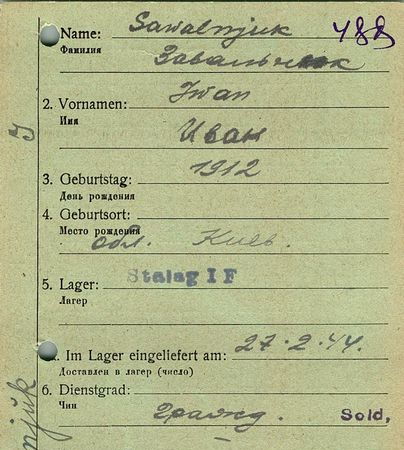 Name: Sawalnjuk 488
Фамилия
Завальнюк
2. Vornamen: Jwan
Имя
Иван
3. Geburtstag: 1912
День рождения
4. Geburtsort:
Место рождения
обл. Киев.
5. Lager: Stalag I F
Лагерь
. Im Lager eingeliefert am: 27.2.44.
Доставлен в лагер (число)
6. Dienstgrad:
Чин
гражд. Sold,